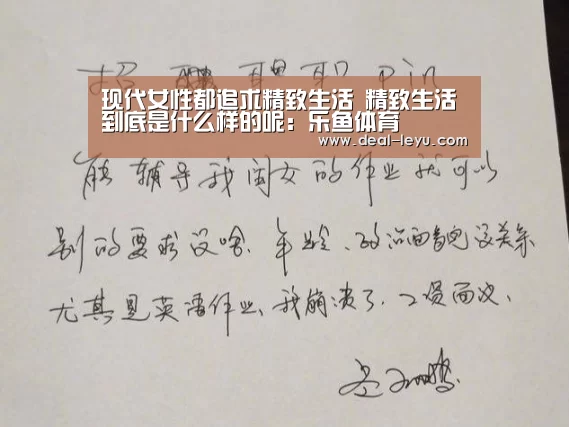 招
现代女性都追求精致生活 精致生活
到底是什么样的呢：乐鱼体育
www.deal-leyu.com
能辅导我闺女的作业就可以
别的要求没啥、年龄、政治面貌没关系
尤其是英语作业、我崩溃了.工资面议、